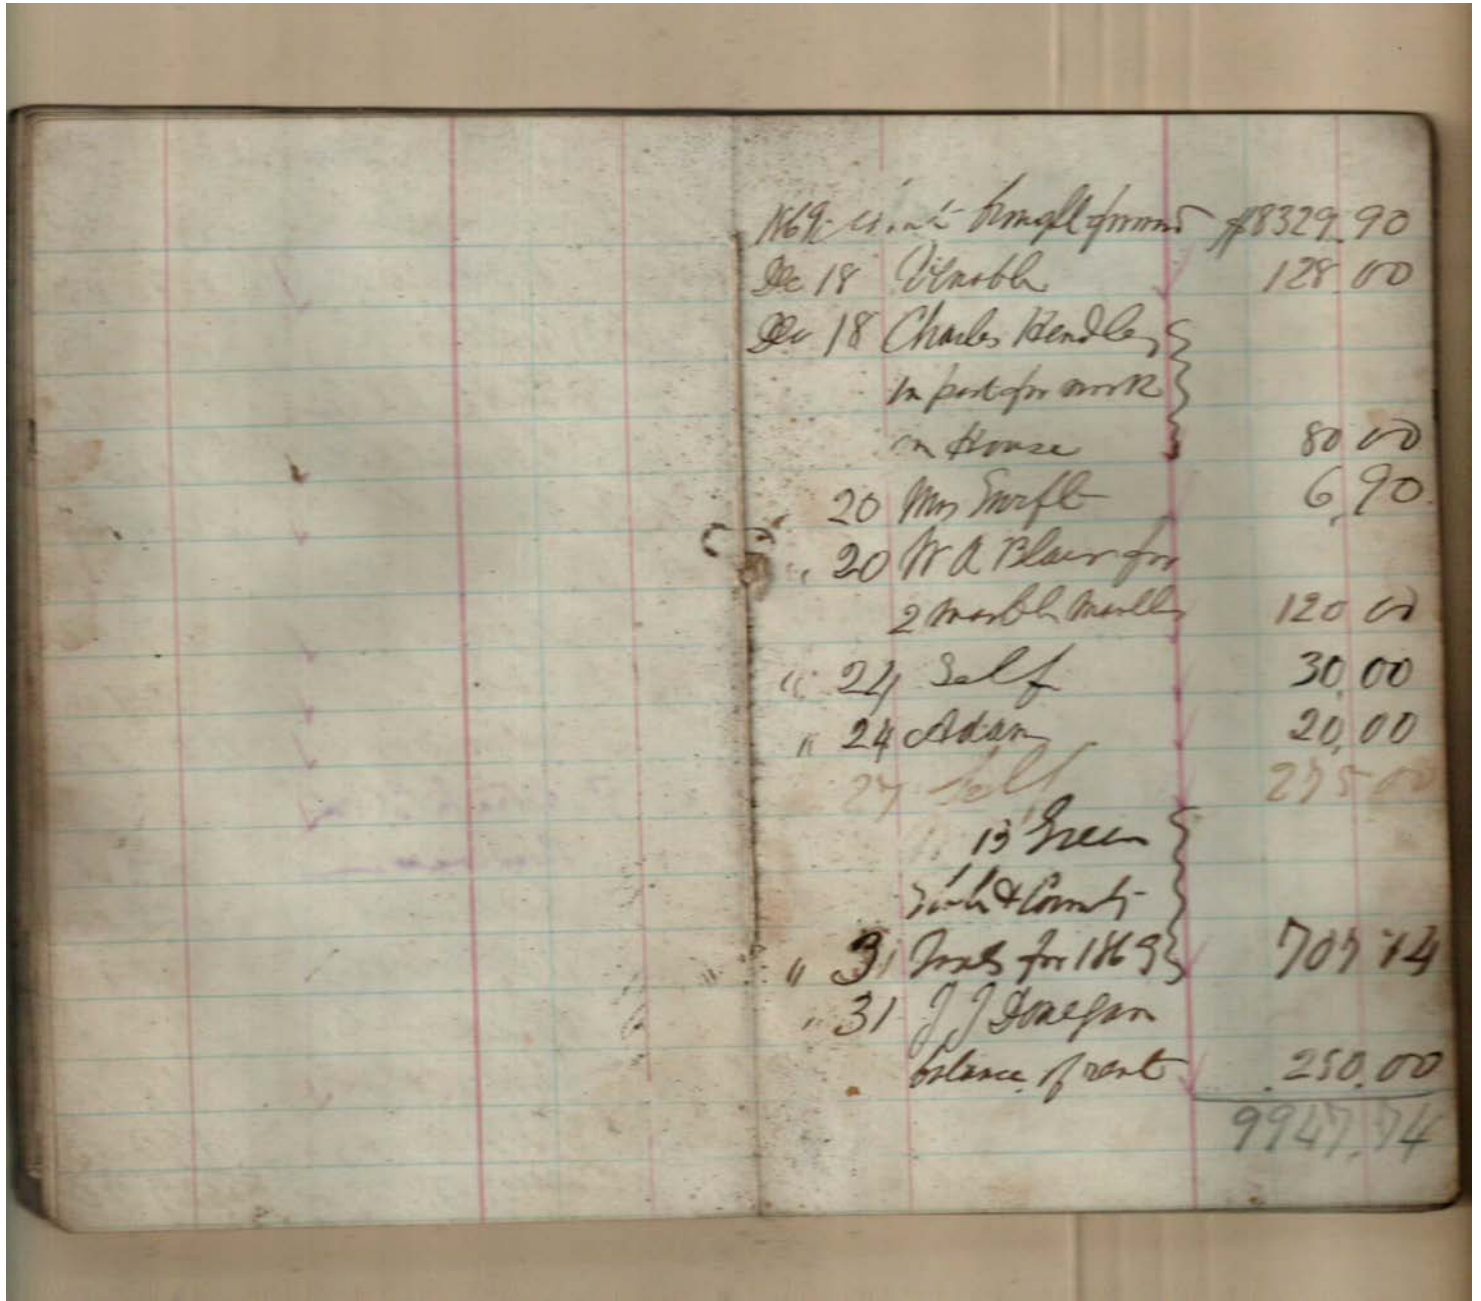 1869 brought forward $8329.90
Dec 18 Venable 128.00
Dec 18 Charles Hendley
in part for work
on House 80 00
20 Mrs Swift 6,90
" 20 W A Blair for
2 marble 120 00
" 24 Self 30,00
" 24 Adam 20,00
27 Self 275 00
Green
& County
" 31 Taxes for 1869 707 14
" 31 J J Donegan
balance of rent 250.00
9947.94